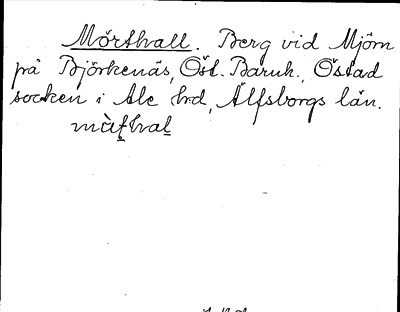 Mörthall. Berg vid Mjörn
på Björkenäs, Öst. Barnh., Östad
socken i Ale hrd, Älfsborgs län.